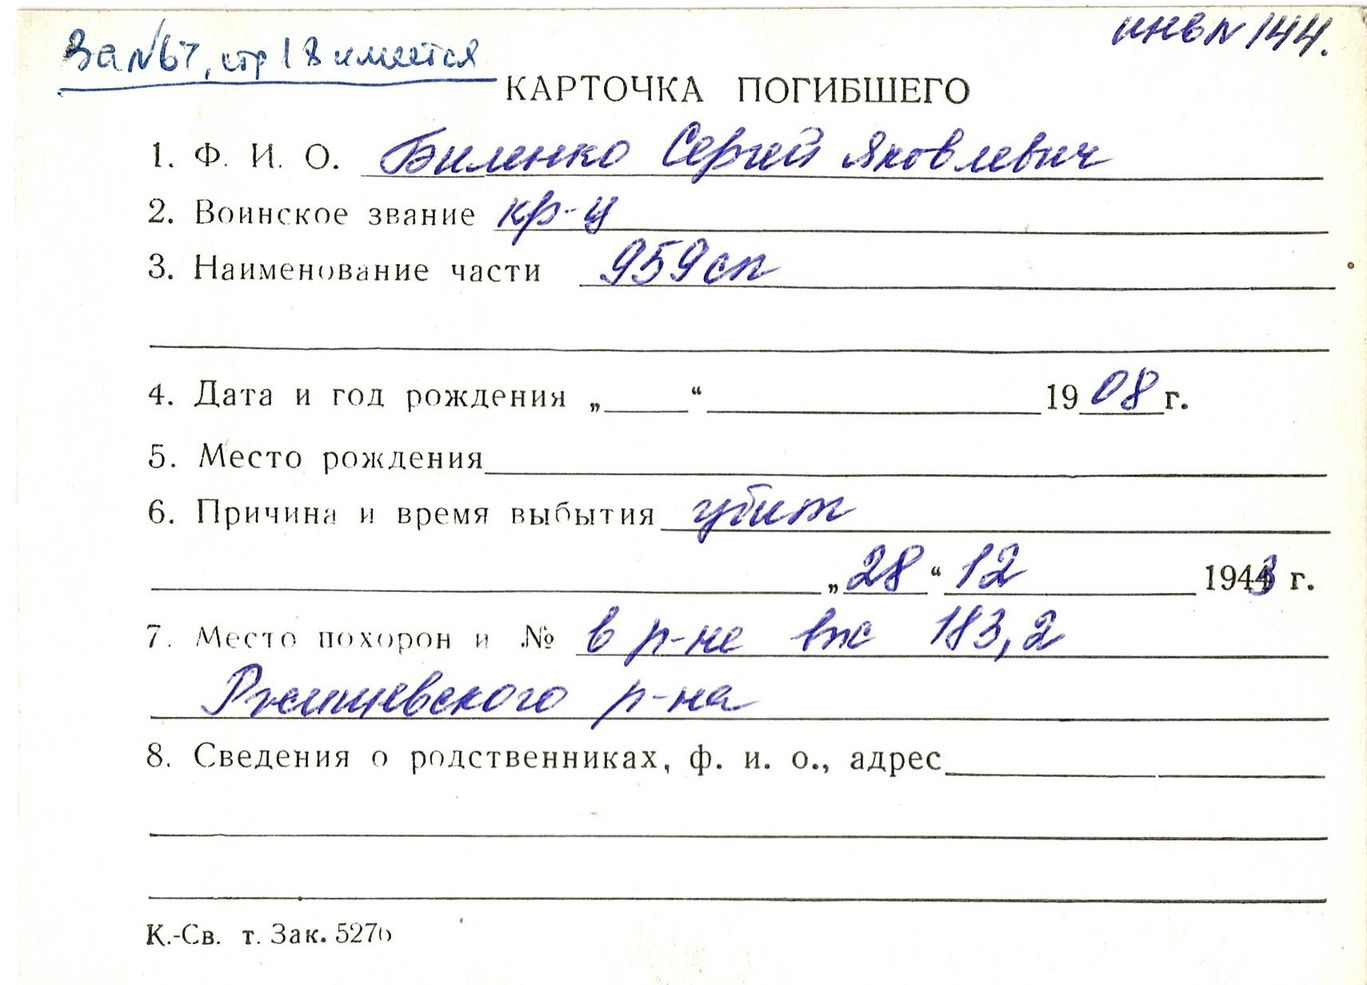 За №67, стр 18 имеется
инв № 144.
КАРТОЧКА ПОГИБШЕГО
1. Ф. И. О. Биленко Сергей Яковлевич
2. Воинское звание кр-ц
3. Наименование части 959сп
4. Дата и год рождения „ “ 1908 г.
5. Место рождения
6. Причина и время выбытия убит
„28“ 12 1943 г.
7. Место похорон и № в р-не выс 183,2
Ржищевского р-на
8. Сведения о родственниках, ф. и. о., адрес
К.-Св. т. Зак. 5276